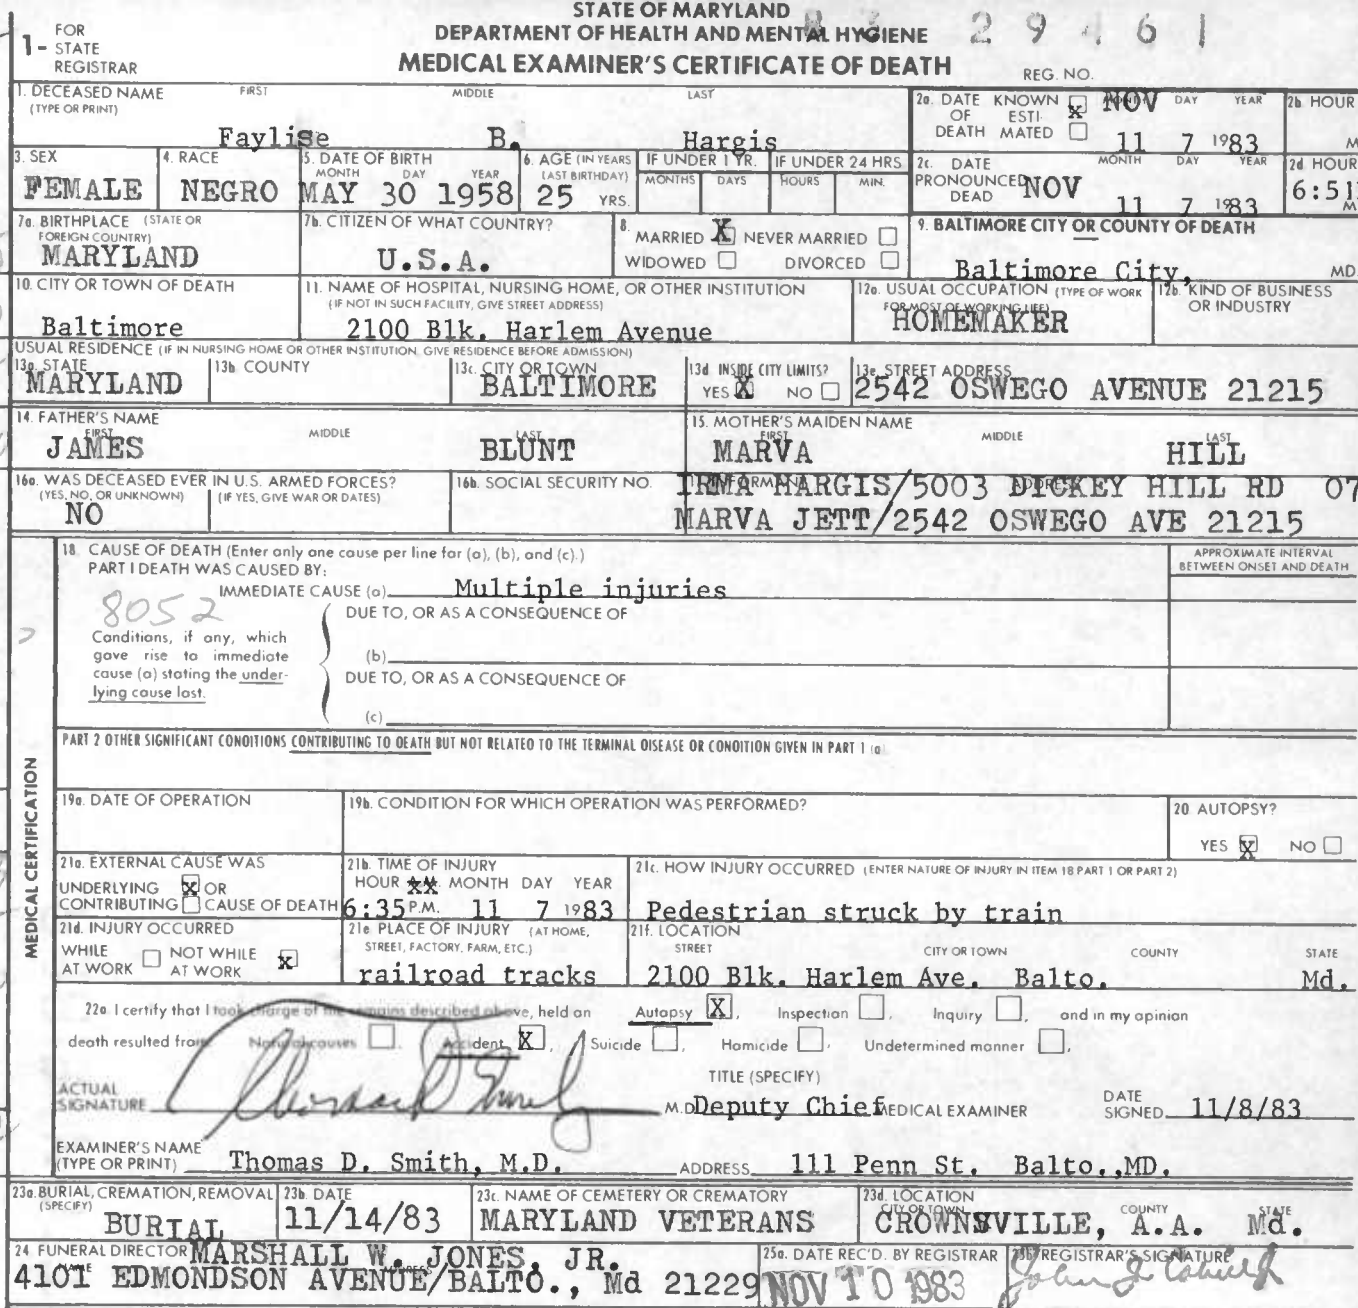 STATE OF MARYLAND
DEPARTMENT OF HEALTH AND MENTAL HYGIENE
MEDICAL EXAMINER'S CERTIFICATE OF DEATH
1- FOR STATE REGISTRAR
29461
REG. NO.
1. DECEASED NAME (TYPE OR PRINT) FIRST MIDDLE LAST
Faylise B. Hargis
2a. DATE OF DEATH KNOWN X ESTIMATED MONTH DAY YEAR
NOV 11 7 1983
2b. HOUR M
3. SEX FEMALE
4. RACE NEGRO
5. DATE OF BIRTH MONTH DAY YEAR
MAY 30 1958
6. AGE (IN YEARS LAST BIRTHDAY) 25 YRS.
IF UNDER 1 YR. MONTHS DAYS
IF UNDER 24 HRS HOURS MIN.
2c. DATE PRONOUNCED DEAD MONTH DAY YEAR
NOV 11 7 1983
2d HOUR 6:51 M
7a. BIRTHPLACE (STATE OR FOREIGN COUNTRY)
MARYLAND
7b. CITIZEN OF WHAT COUNTRY?
U.S.A.
8. MARRIED X NEVER MARRIED
WIDOWED DIVORCED
9. BALTIMORE CITY OR COUNTY OF DEATH
Baltimore City, MD.
10. CITY OR TOWN OF DEATH
Baltimore
11. NAME OF HOSPITAL, NURSING HOME, OR OTHER INSTITUTION
(IF NOT IN SUCH FACILITY, GIVE STREET ADDRESS)
2100 Blk. Harlem Avenue
12a. USUAL OCCUPATION (TYPE OF WORK FOR MOST OF WORKING LIFE)
HOMEMAKER
12b. KIND OF BUSINESS OR INDUSTRY
USUAL RESIDENCE (IF IN NURSING HOME OR OTHER INSTITUTION, GIVE RESIDENCE BEFORE ADMISSION)
13a. STATE MARYLAND
13b. COUNTY
13c. CITY OR TOWN BALTIMORE
13d INSIDE CITY LIMITS? YES X NO
13e. STREET ADDRESS
2542 OSWEGO AVENUE 21215
14. FATHER'S NAME FIRST MIDDLE LAST
JAMES BLUNT
15. MOTHER'S MAIDEN NAME FIRST MIDDLE LAST
MARVA HILL
16a. WAS DECEASED EVER IN U.S. ARMED FORCES?
(YES, NO, OR UNKNOWN) (IF YES, GIVE WAR OR DATES)
NO
16b. SOCIAL SECURITY NO.
INFORMANT ADDRESS
IRMA HARGIS/5003 DICKEY HILL RD 07
MARVA JETT/2542 OSWEGO AVE 21215
MEDICAL CERTIFICATION
18. CAUSE OF DEATH (Enter only one cause per line for (a), (b), and (c).)
APPROXIMATE INTERVAL BETWEEN ONSET AND DEATH
PART I DEATH WAS CAUSED BY:
IMMEDIATE CAUSE (a) Multiple injuries
8052
DUE TO, OR AS A CONSEQUENCE OF
Conditions, if any, which gave rise to immediate cause (a) stating the underlying cause last.
(b)
DUE TO, OR AS A CONSEQUENCE OF
(c)
PART 2 OTHER SIGNIFICANT CONDITIONS CONTRIBUTING TO DEATH BUT NOT RELATED TO THE TERMINAL DISEASE OR CONDITION GIVEN IN PART 1 (a)
19a. DATE OF OPERATION
19b. CONDITION FOR WHICH OPERATION WAS PERFORMED?
20 AUTOPSY?
YES X NO
21a. EXTERNAL CAUSE WAS
UNDERLYING X OR
CONTRIBUTING CAUSE OF DEATH
21b. TIME OF INJURY
HOUR MONTH DAY YEAR
6:35 P.M. 11 7 1983
21c. HOW INJURY OCCURRED (ENTER NATURE OF INJURY IN ITEM 18 PART 1 OR PART 2)
Pedestrian struck by train
21d. INJURY OCCURRED
WHILE AT WORK NOT WHILE AT WORK X
21e PLACE OF INJURY (AT HOME, STREET, FACTORY, FARM, ETC.)
railroad tracks
21f. LOCATION
STREET CITY OR TOWN COUNTY STATE
2100 Blk. Harlem Ave. Balto. Md.
22a I certify that I took charge of the remains described above, held an Autopsy X, Inspection, Inquiry, and in my opinion
death resulted from Natural causes, Accident X, Suicide, Homicide, Undetermined manner,
TITLE (SPECIFY)
ACTUAL SIGNATURE M.D. Deputy Chief MEDICAL EXAMINER DATE SIGNED 11/8/83
EXAMINER'S NAME (TYPE OR PRINT) Thomas D. Smith, M.D. ADDRESS 111 Penn St. Balto.,MD.
23a. BURIAL, CREMATION, REMOVAL (SPECIFY)
BURIAL
23b. DATE
11/14/83
23c. NAME OF CEMETERY OR CREMATORY
MARYLAND VETERANS
23d. LOCATION CITY OR TOWN COUNTY STATE
CROWNSVILLE, A.A. Md.
24 FUNERAL DIRECTOR NAME ADDRESS
MARSHALL W. JONES, JR.
4101 EDMONDSON AVENUE/BALTO., Md 21229
25a. DATE REC'D. BY REGISTRAR
NOV 10 1983
REGISTRAR'S SIGNATURE